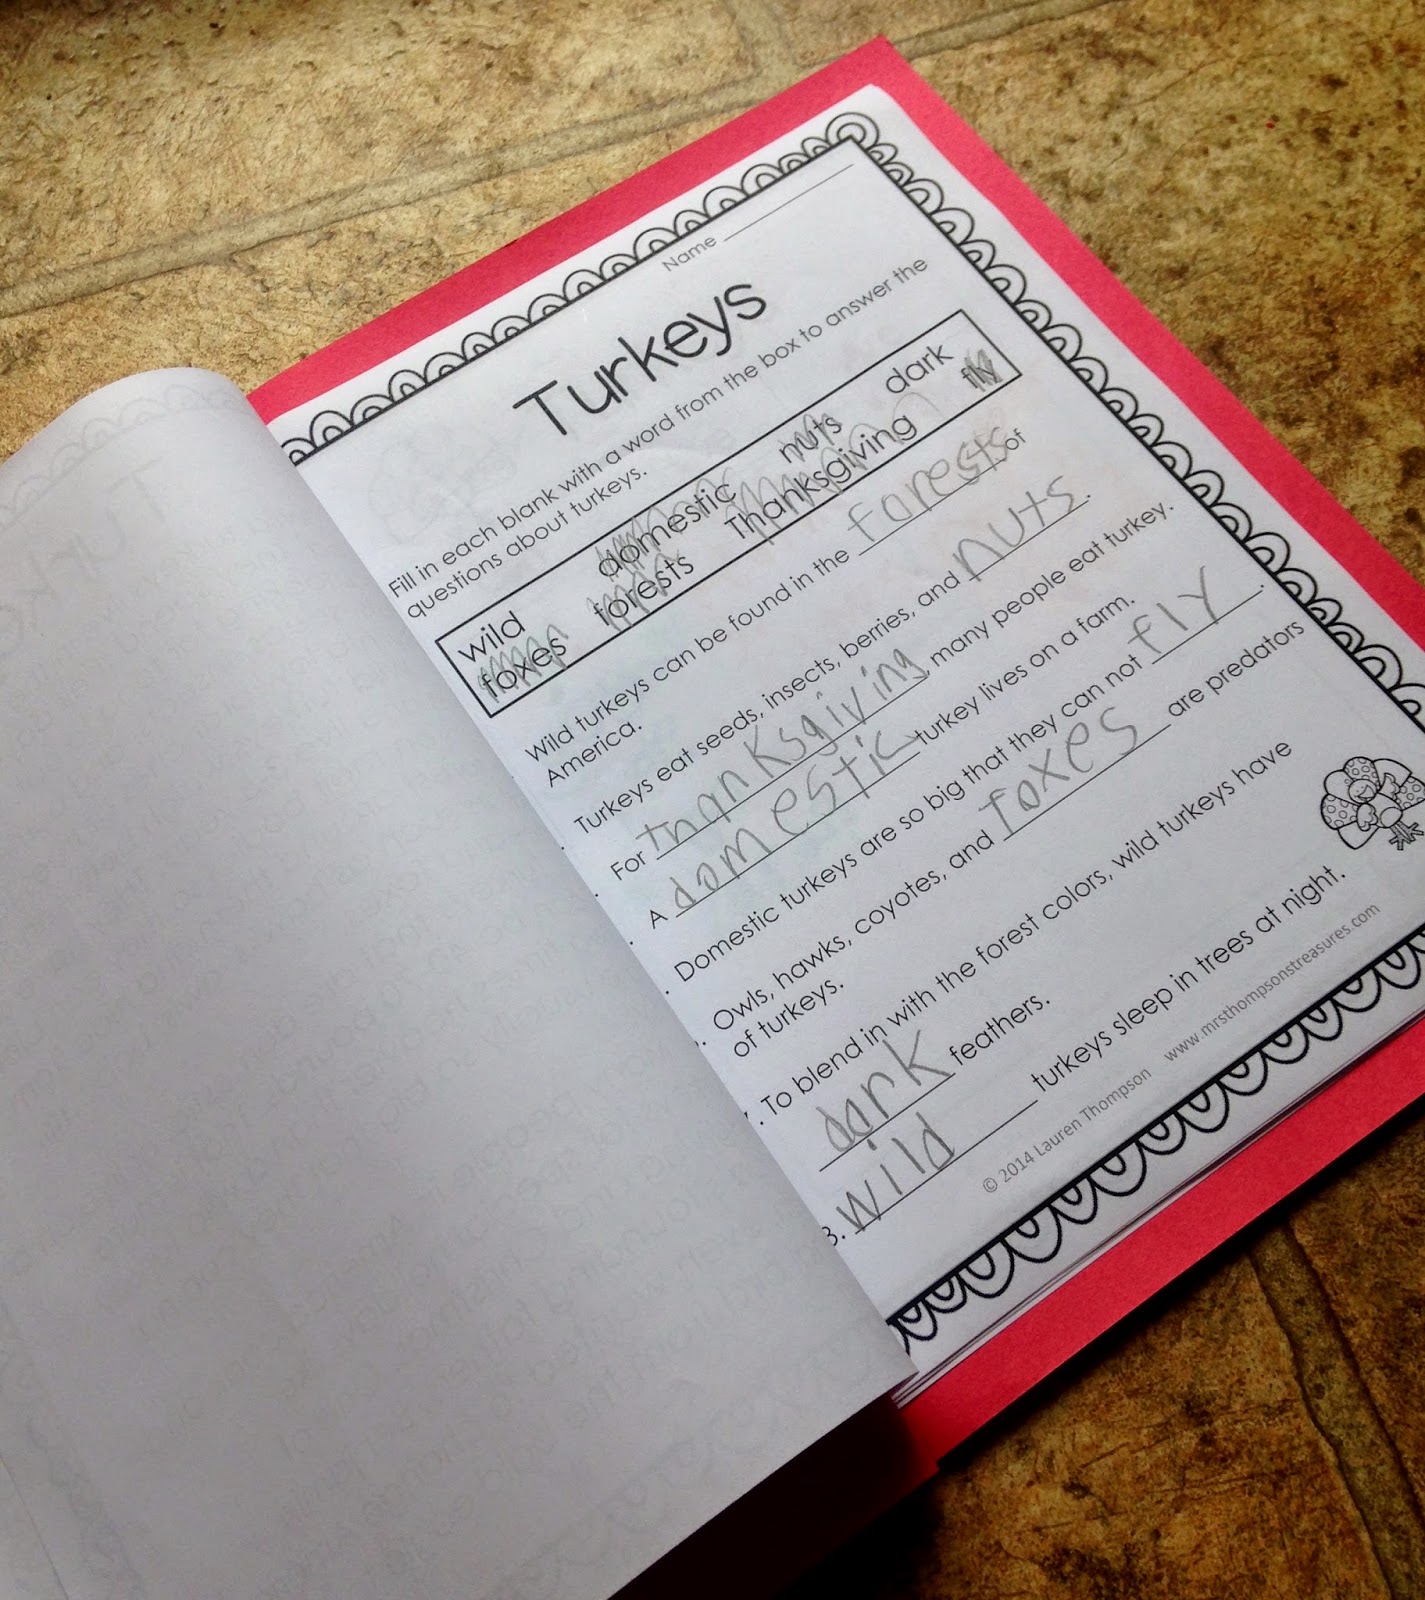 Name
Turkeys
Fill in each blank with a word from the box to answer the
questions about turkeys.
wild domestic nuts dark
foxes forests Thanksgiving fly
Wild turkeys can be found in the forests of
America.
Turkeys eat seeds, insects, berries, and nuts.
For Thanksgiving, many people eat turkey.
A domestic turkey lives on a farm.
Domestic turkeys are so big that they can not fly.
Owls, hawks, coyotes, and foxes are predators
of turkeys.
. To blend in with the forest colors, wild turkeys have
dark feathers.
8. wild turkeys sleep in trees at night.
© 2014 Lauren Thompson www.mrsthompsonstreasures.com